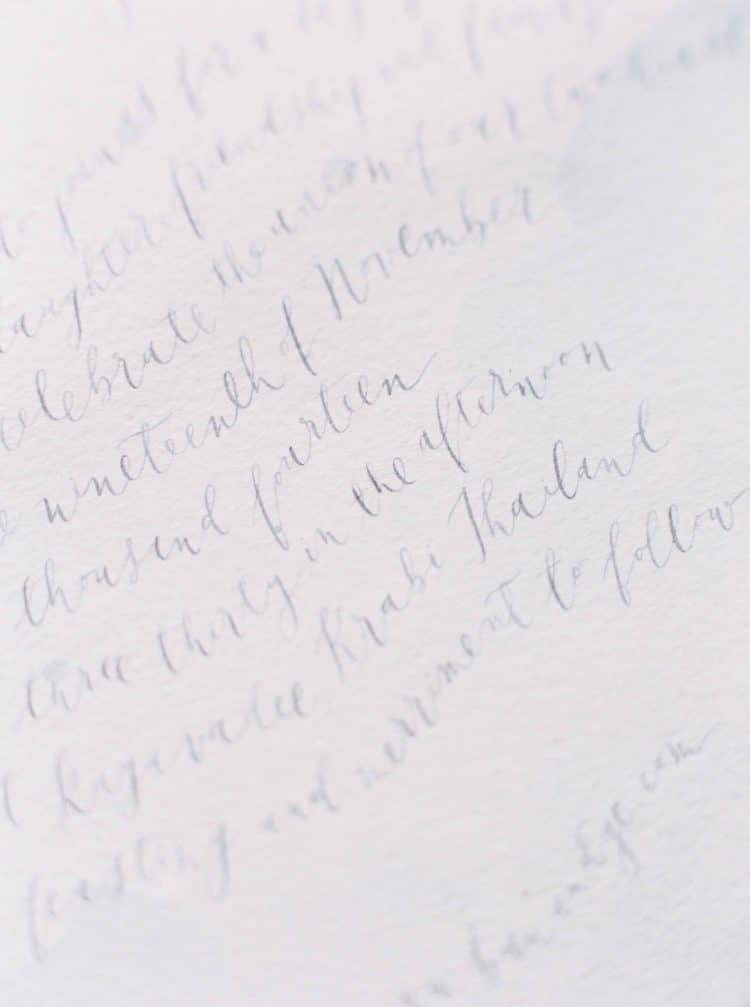 to join us for a
laughter friendship and family
celebrate the union of our
nineteenth of November
thousand fourteen
three thirty in the afternoon
Rayavadee Krabi Thailand
feasting and merriment to follow